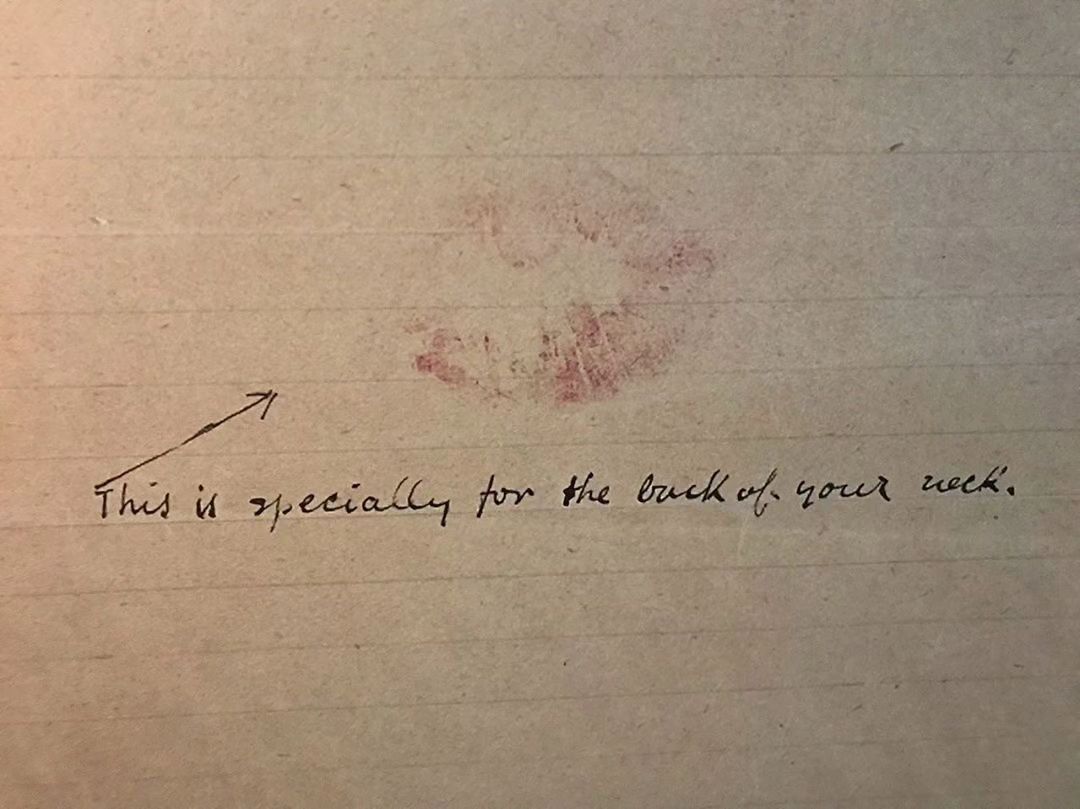 This is specially for the back of your neck.